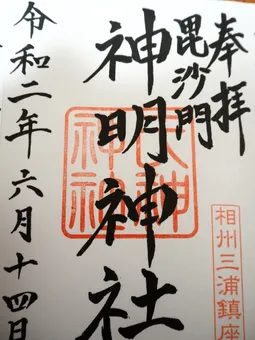 奉拝
毘沙門
神明神社
相州三浦鎮座
令和二年六月十四日